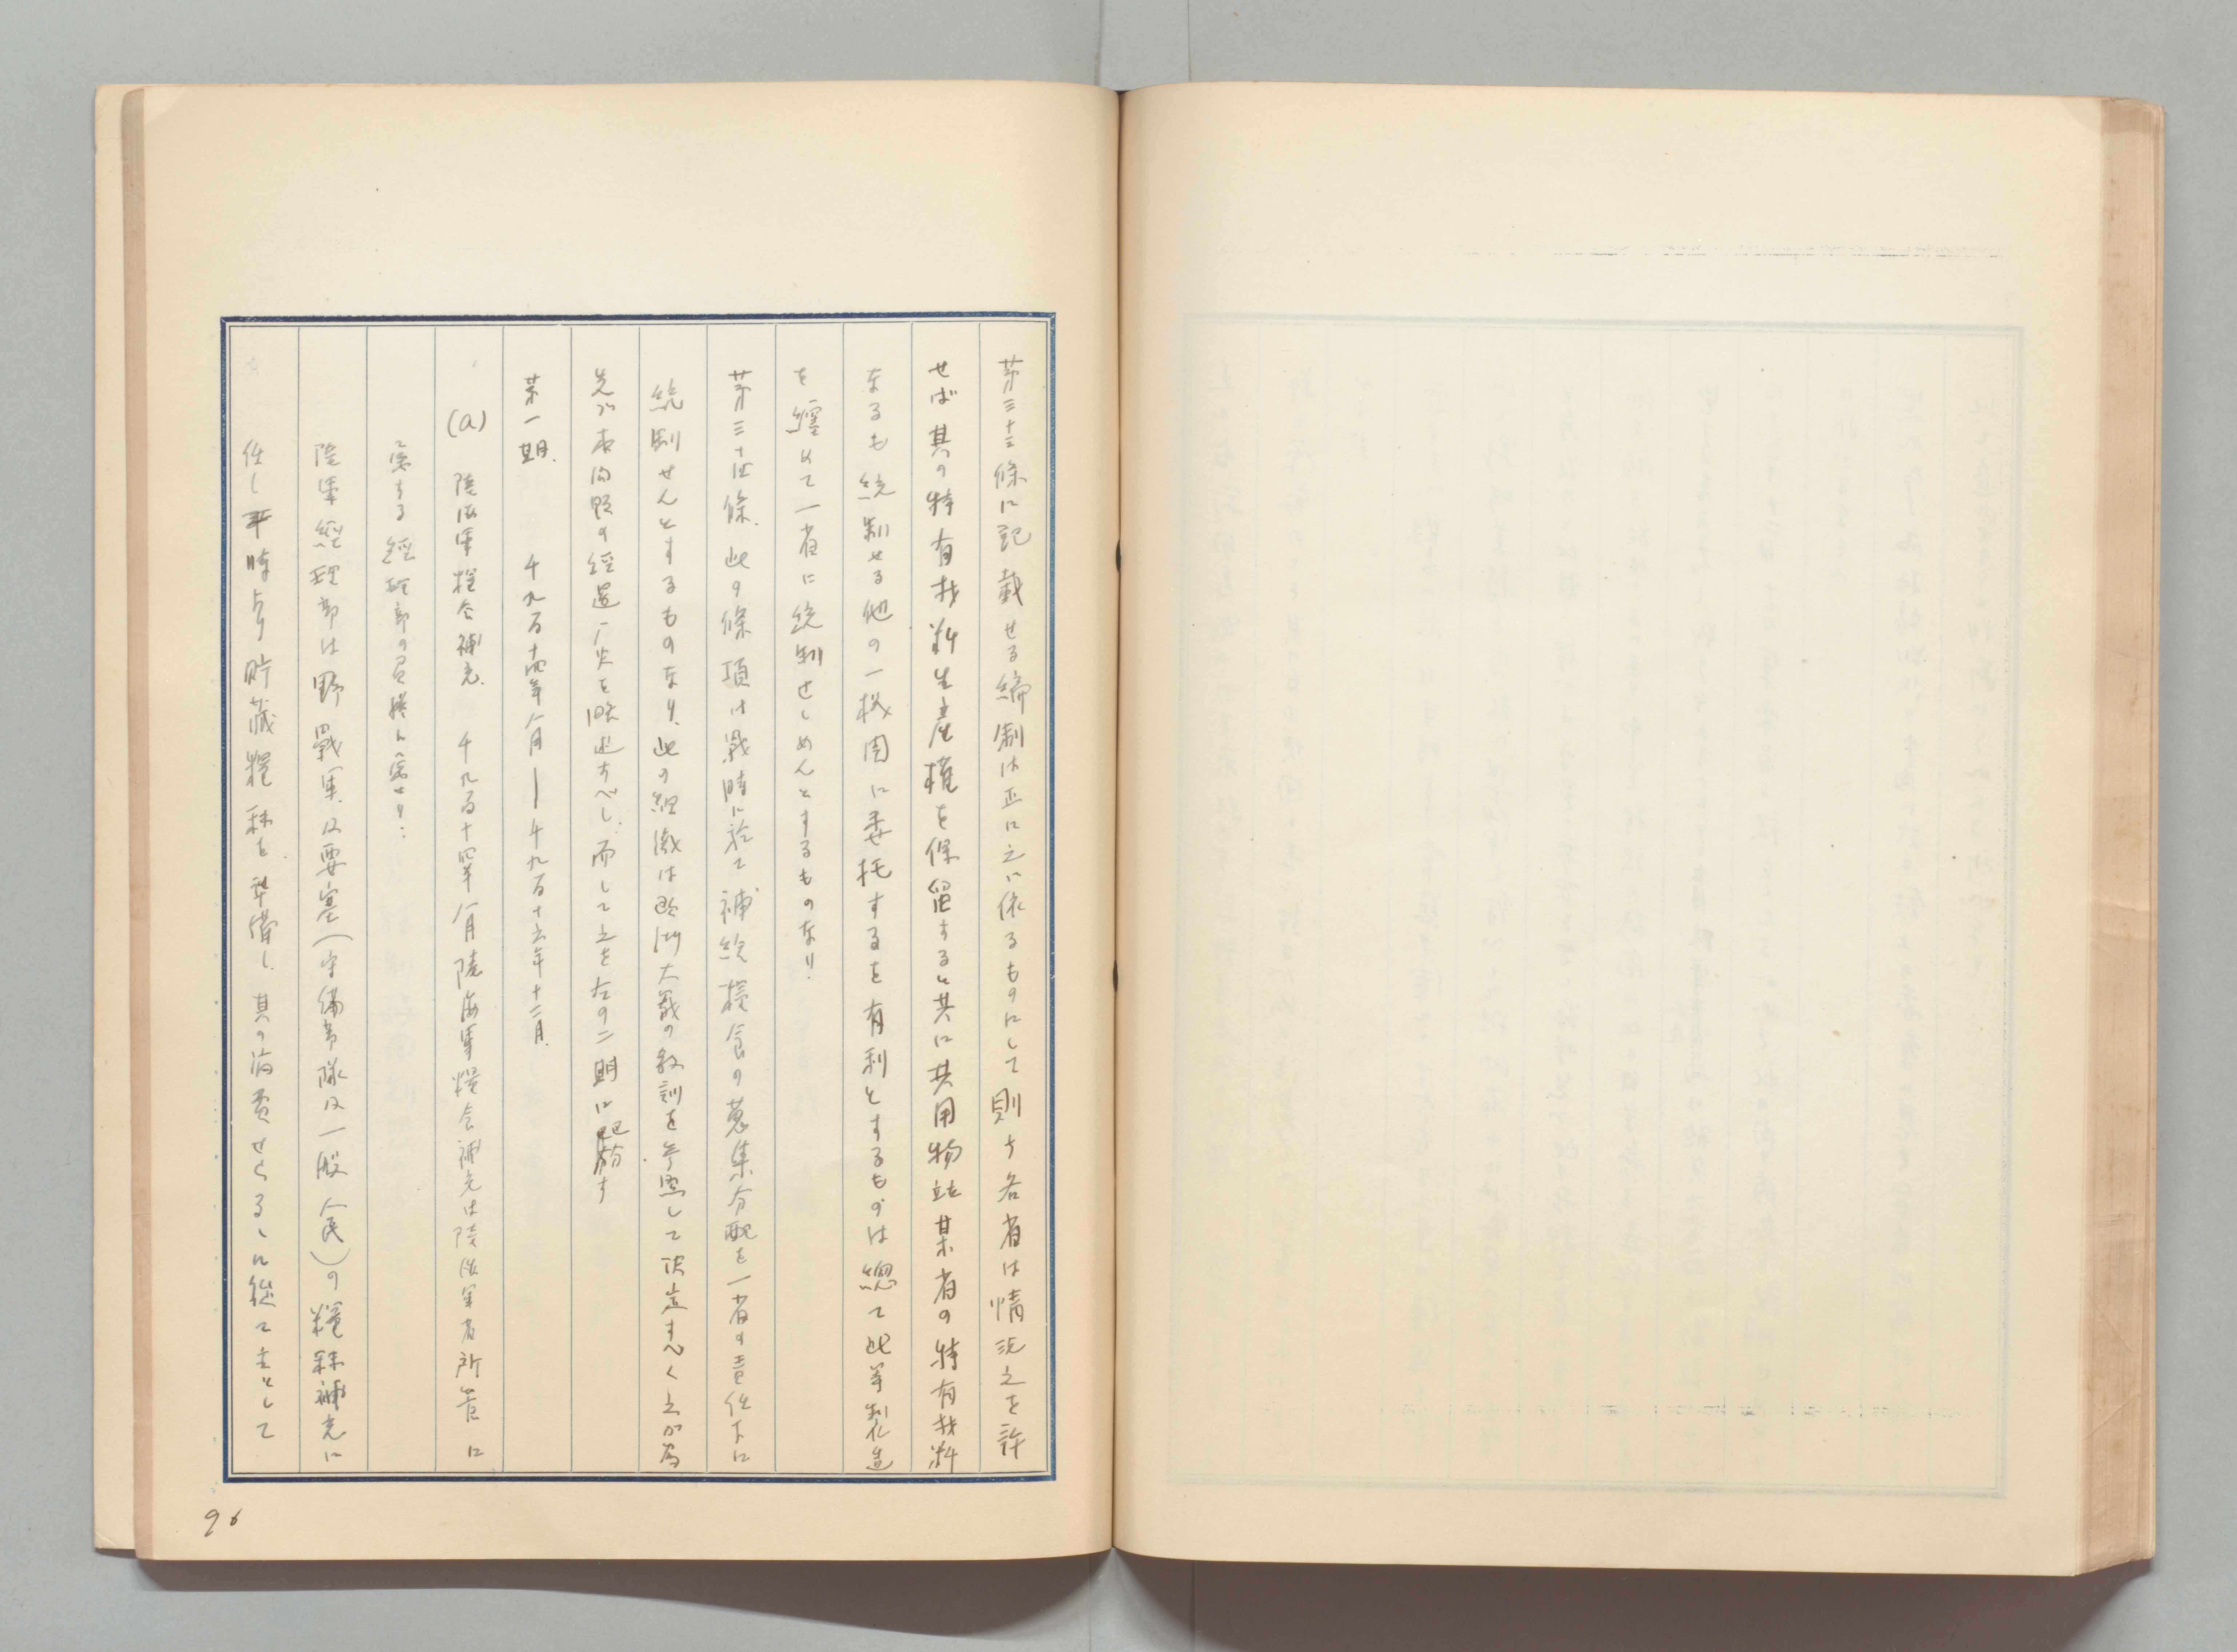 第三十三條に記載せる締制は正に之に依るものにして則ち各省は情況之を許
せば其の特有材料生産権を保留すると共に共用物並某省の特有材料
なるも統制せる他の一機関に委托するを有利とするものは總て此等製造
を纏めて一省に統制せしめんとするものなり.
第三十四條. 此の條項は戰時に於て補給糧食の蒐集分配を一省の責任下に
統制せんとするものなり. 此の組織は欧洲大戰の教訓を参照して決定すべく之が為
先づ本問題の経過歴史を略述すべし. 而して之を左の二期に区分す
第一期. 千九百十四年八月―千九百十六年十二月.
(a) 陸海軍糧食補充. 千九百十四年八月陸海軍糧食補充は陸海軍省所管に
属する経理部の負擔に属せり:
陸軍經理部は野戰軍及要塞(守備部隊及一般人民)の糧秣補充に
任し平時より貯藏糧秣を準備し. 其の消費せらるゝに從て主として
96